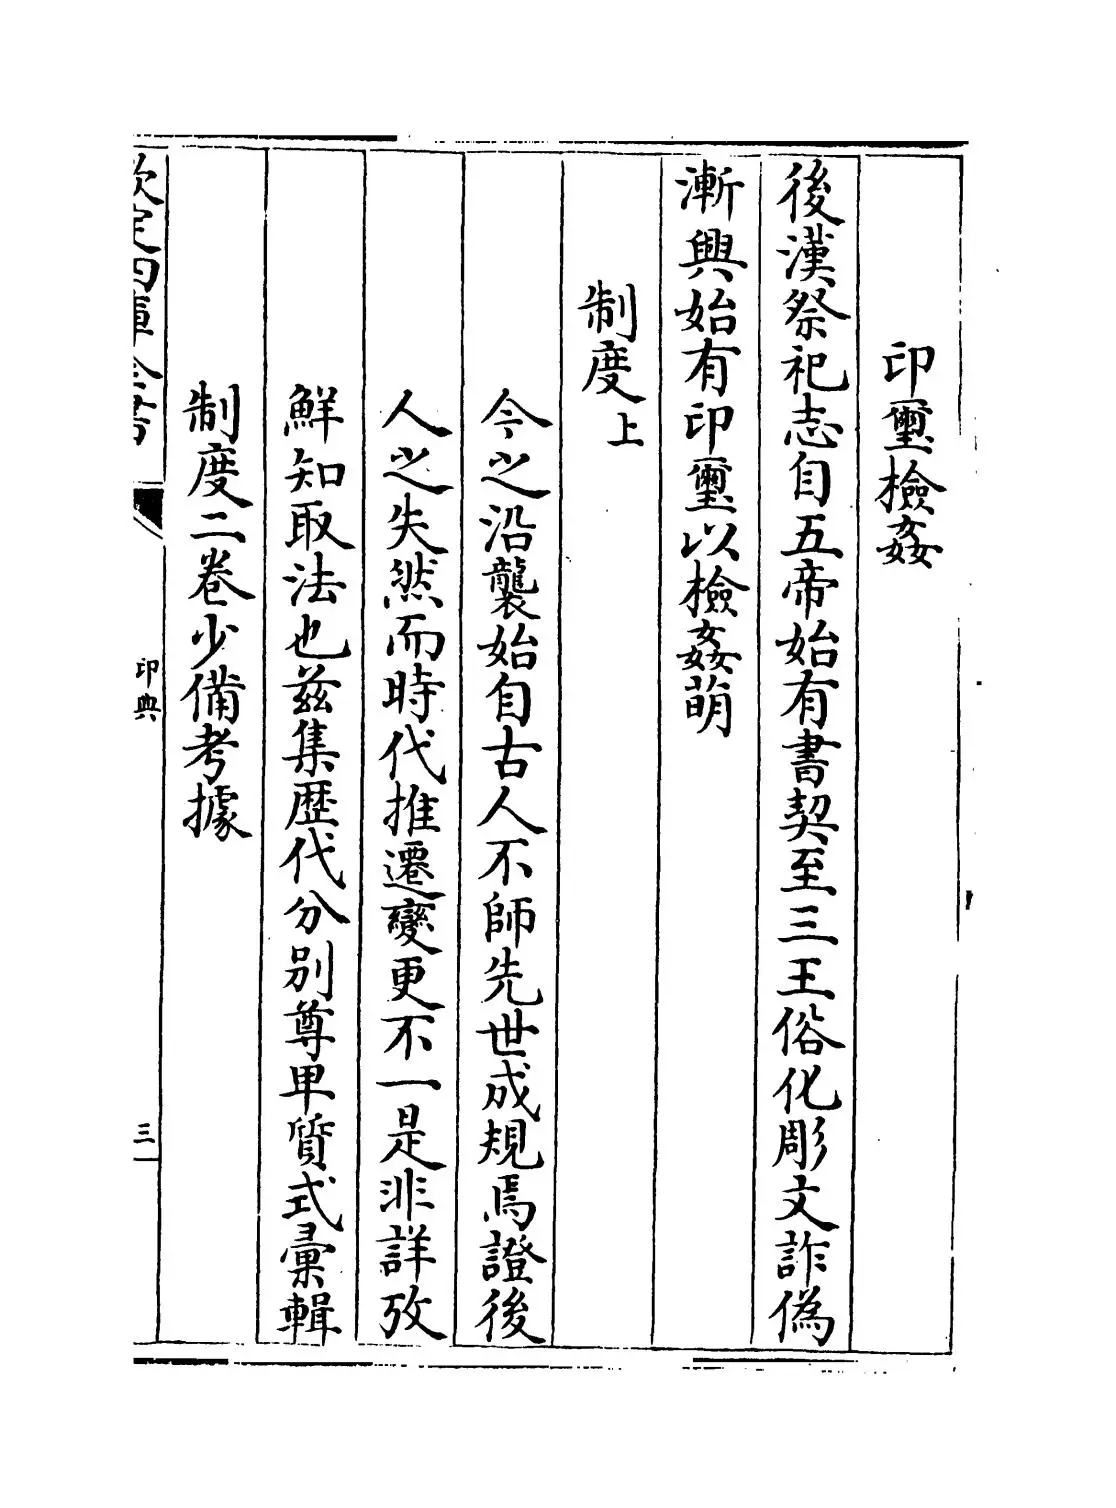 印璽檢姦
後漢祭祀志自五帝始有書契至三王俗化彫文詐偽
漸興始有印璽以檢姦萌
制度上
今之沿襲始自古人不師先世成規焉證後
人之失然而時代推遷變更不一是非詳攷
鮮知取法也茲集歴代分别尊卑質式彙輯
制度二卷少備考據
欽定四庫全書
印典
三